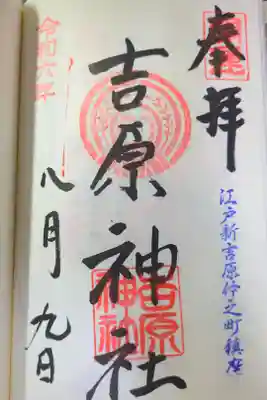 奉拝
江戸新吉原仲之町鎮座
吉原神社
吉原神社
令和六年
八月九日